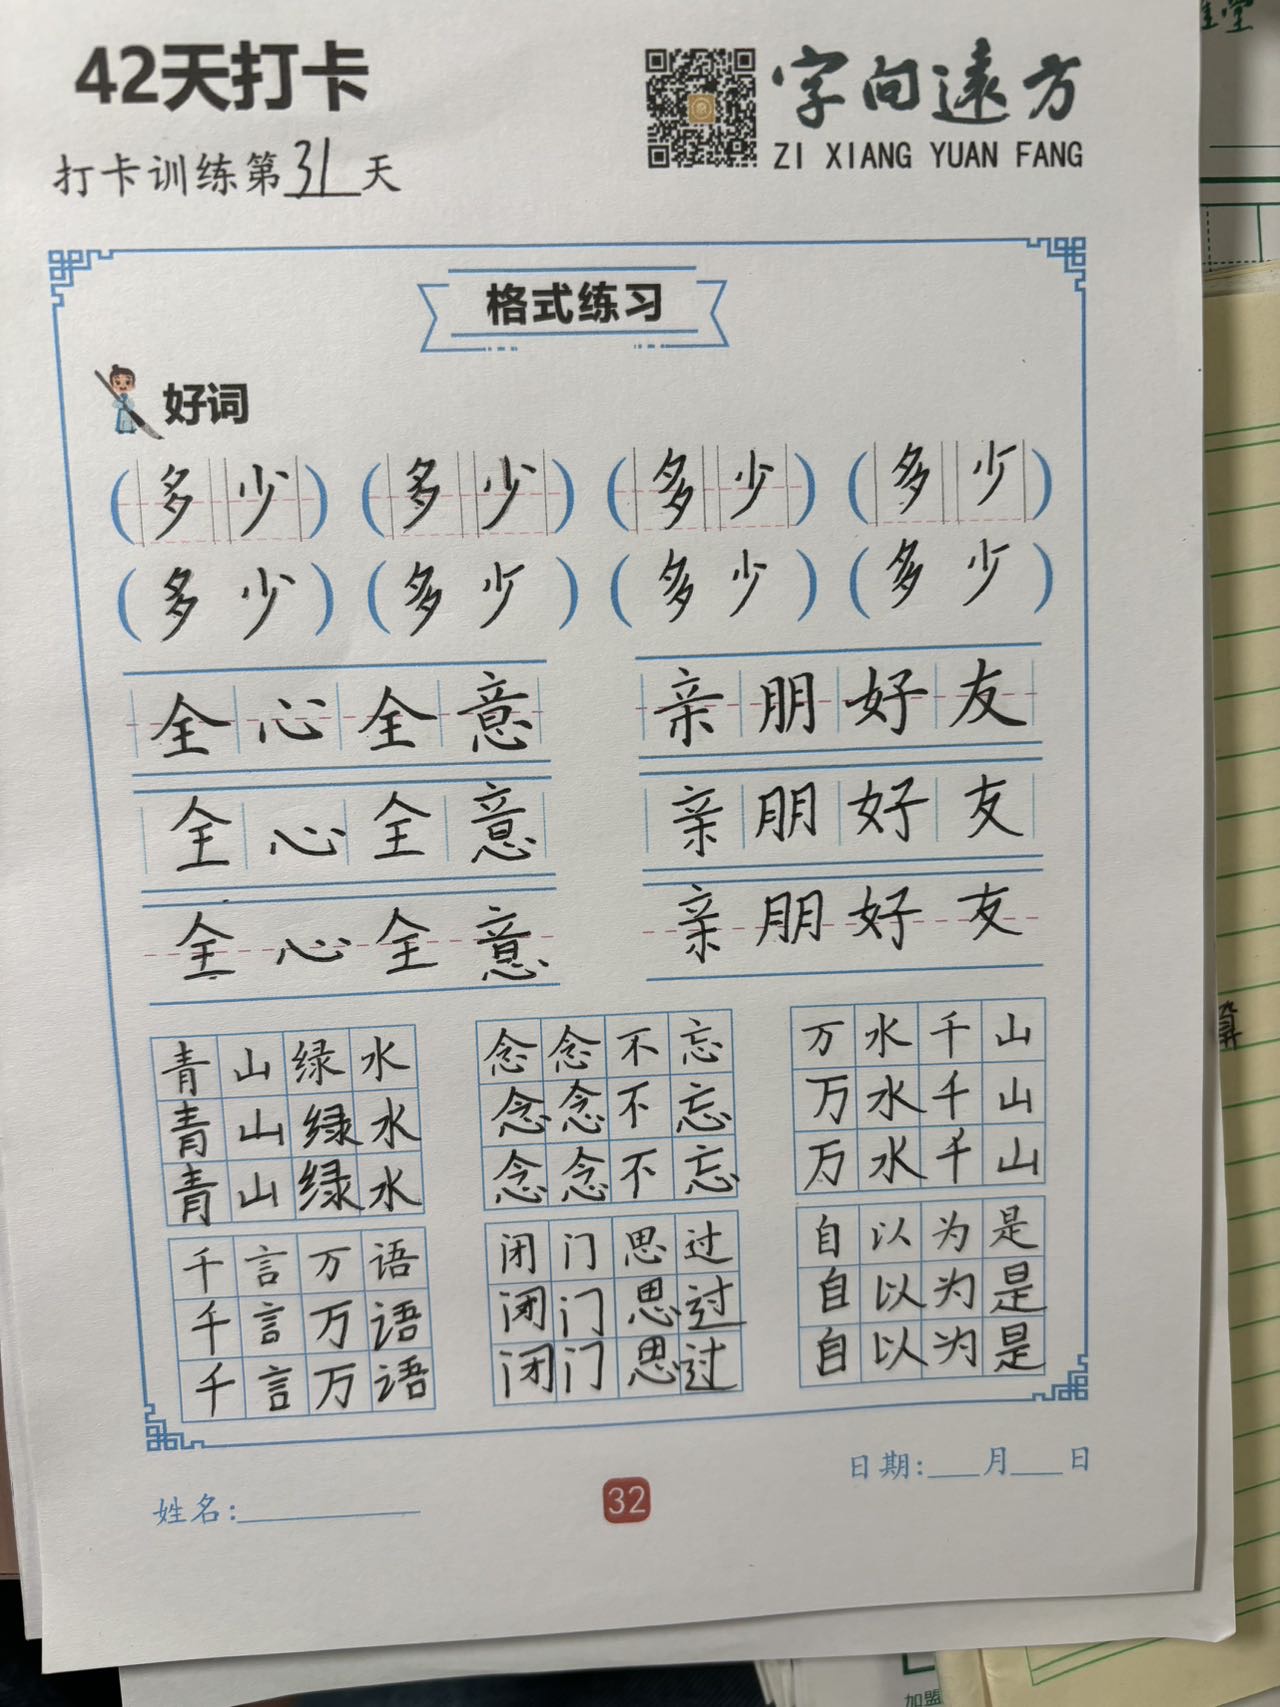 42天打卡
字向远方
ZI XIANG YUAN FANG
打卡训练第31天
格式练习
好词
(多少) (多少) (多少) (多少)
(多少) (多少) (多少) (多少)
全心全意 亲朋好友
全心全意 亲朋好友
全心全意 亲朋好友
青山绿水 念念不忘 万水千山
青山绿水 念念不忘 万水千山
青山绿水 念念不忘 万水千山
千言万语 闭门思过 自以为是
千言万语 闭门思过 自以为是
千言万语 闭门思过 自以为是
日期:___月___日
姓名:
32
加盟